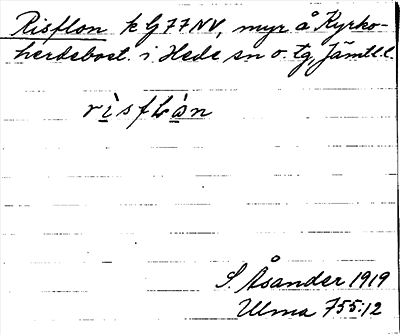 Risflon k G 77 NV, myr å Kyrko-
herdebost. i Hede sn o. tg, Jämtl.l.
rìsfLàn
S. Åsander 1919
Ulma 755:12